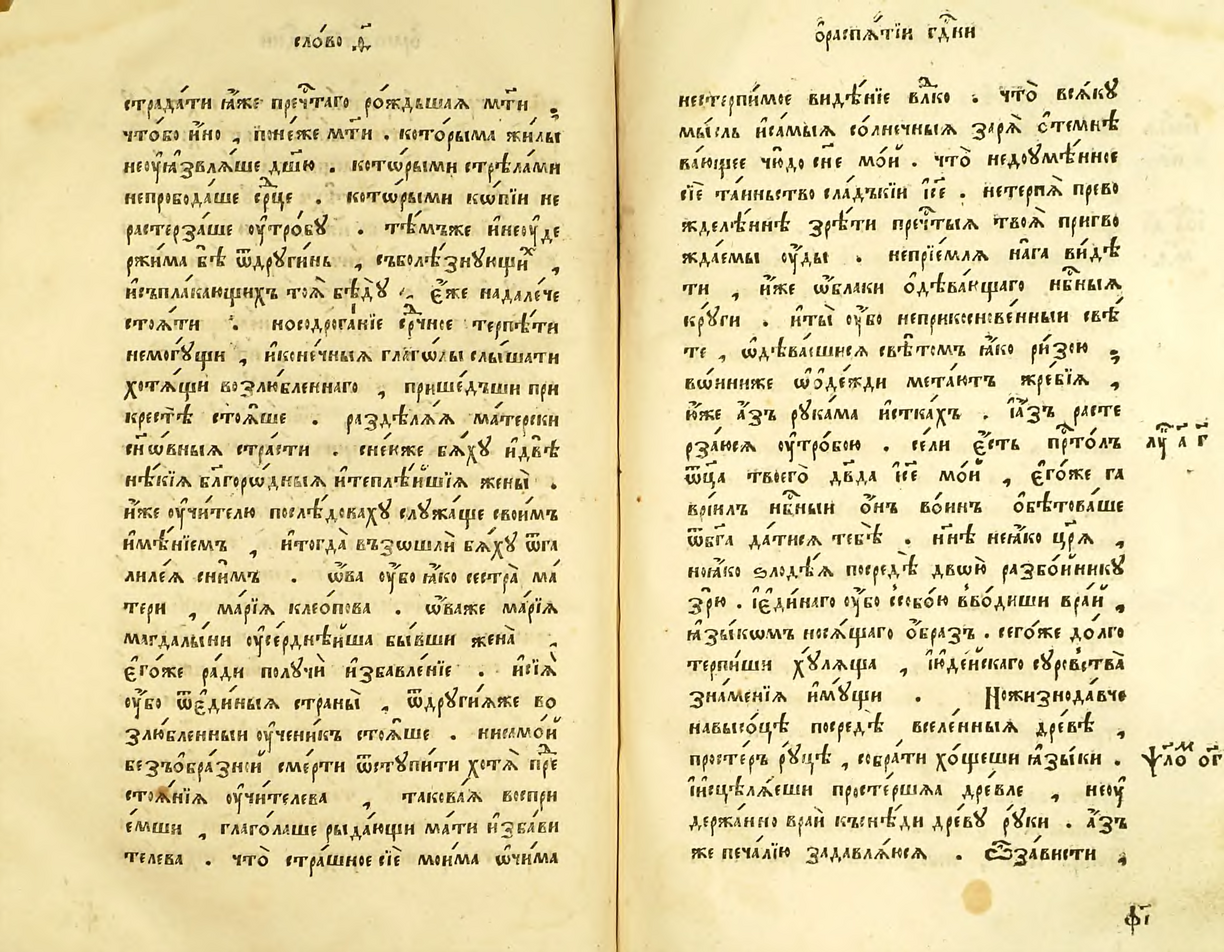 сло́во д҃
страда́ти ꙗ҆́же пречⷭ҇таго ро́ждьшаѧ мт҃и ;
что́бо и҆́но , поне́же мт҃и . кото́рыма жи́лы
неоу҆ꙗ҆звлѧ́ше дш҃ю . кото́рыми стрѣ́лами
непробода́ше ср҃це . кото́рыми кѡ́пїи не
растерза́ше оу҆тро́бꙋ . тѣ́мъже и҆неоу҆де
ржи́ма бѣ̀ ѿдрꙋги́нь , съболѣ́знꙋющиⷯ ,
и҆съпла́кающихъ тоѧ̀ бѣ́дꙋ , є҆́же надале́че
стоѧ́ти . носодрога́нїе срⷣчное терпѣ́ти
немогꙋ́щи , и҆коне́чныѧ глаго́лы слы́шати
хотѧ́щи возлю́бленнаго , прише́дъши при
крестѣ̀ стоѧ́ше . раздѣлѧ́ѧ ма́терски
сн҃ѡ́вныѧ стра́сти . сне́юже бѧ́хꙋ и҆двѣ̀
нѣ́кїѧ бл҃горѡ́дныѧ и҆теплѣ́йшїѧ жены̀ .
и҆̀же оу҆чи́телю послѣ́доваху слꙋжа́ще свои́мъ
и҆мѣ́нїемъ , и҆тогда̀ възошлѝ бѧ́хꙋ ѿга
лиле́ѧ сни́мъ . ѡ҆́ва оу҆́бо ꙗ҆́ко сестра̀ ма́
тери , ма́рїѧ клео́пова . ѡ҆́важе ма́рїѧ
магдалы́ни оу҆се́рднѣйша бы́вши жена̀ ,
є҆го́же ра́ди полꙋчѝ и҆збавле́нїе . и҆сїѧ̀
оу҆́бо ѿє҆ди́ныѧ страны̀ , ѿдрꙋгі́ѧже во
злю́бленныи оу҆чени́къ стоѧ́ше . нисамо́й
безъѡбра́зной сме́рти ѿстꙋпи́ти хотѧ̀ пре́
стоѧ́нїѧ оу҆чи́телева , такова́ѧ воспри
е́мши , глаго́лаше рыда́ющи ма́ти и҆зба́ви
телева . что̀ стра́шное сїѐ мои́ма ѡ҆чи́ма
ѡ҆распѧ́тїи гдⷭ҇ни
нестерпи́мое видѣ́нїе влⷣко . что̀ всѧ́кꙋ
мы́сль и҆самы́ѧ со́лнечныѧ зарѧ̀ ѻ҆стемнѣ
ва́ющее чю́до сн҃е мо́й . что̀ недоꙋмѣ́нное
сїѐ та́иньство сла́дъкїи іс҃е . нетерпѧ̀ прево
жделѣ́ннѣ зрѣ́ти пречⷭ҇тыѧ твоѧ̀ пригво
жда́емы оу҆́ды . непрїе́млѧ на́га ви́дѣ
ти , и҆́же ѡ҆́блаки ѻ҆дѣва́ющаго нбⷭ҇ныѧ
крꙋ́ги . и҆ты̀ оу҆́бо неприкоснове́нныи свѣ́
те , ѡ҆дѣва́ѧисѧ свѣ́томъ ꙗ҆́ко ри́зою ;
во́ининиже ѡ҆ѻ҆де́жди мета́ютъ жре́бїѧ ,
ю҆́же а҆́зъ рꙋка́ма и҆стка́хъ . і҆а҆́зъ расте
рза́юсѧ оу҆тро́бою . се́ли є҆́сть прⷭ҇то́лъ
ѿц҃а̀ твоего̀ дв҃да іс҃е мо́й , є҆го́же га
врїи́лъ нбⷭ҇ныи ѻ҆́нъ во́инъ ѻ҆бѣтова́ше
ѿбг҃а да́тисѧ тебѣ̀ . нн҃ѣ неꙗ҆́ко цр҃ѧ̀ ,
ноꙗ҆́ко ѕлодѣ́ѧ посредѣ̀ двою̀ разбо́йникꙋ
зрю̀ . і҆є҆ди́наго оу҆́бо ссобо́ю вво́диши вра́й ,
ꙗ҆зы́кѡмъ носѧ́щаго ѻ҆́бразъ . сего́же до́лго
терпи́ши хꙋ́лѧща , і҆юде́йскаго сꙋро́вства
зна́менїѧ и҆мꙋ́щи . Ножизнода́вче
навысо́цѣ посредѣ̀ вселе́нныѧ дре́вѣ ,
просте́ръ рꙋ́цѣ , собра́ти хо́щеши ꙗ҆зы́ки .
і҆исцѣлѧ́еши просте́ршѧѧ дре́вле , неоу҆
держа́нно вра́й къснѣ́ди дре́вꙋ рꙋ́ки . а҆́зъ
же печа́лїю задавлѧ́юсѧ . Ѿза́висти ,
лꙋⷦ҇ а҃ г҃
ѱло́м о҃г
ф҃і